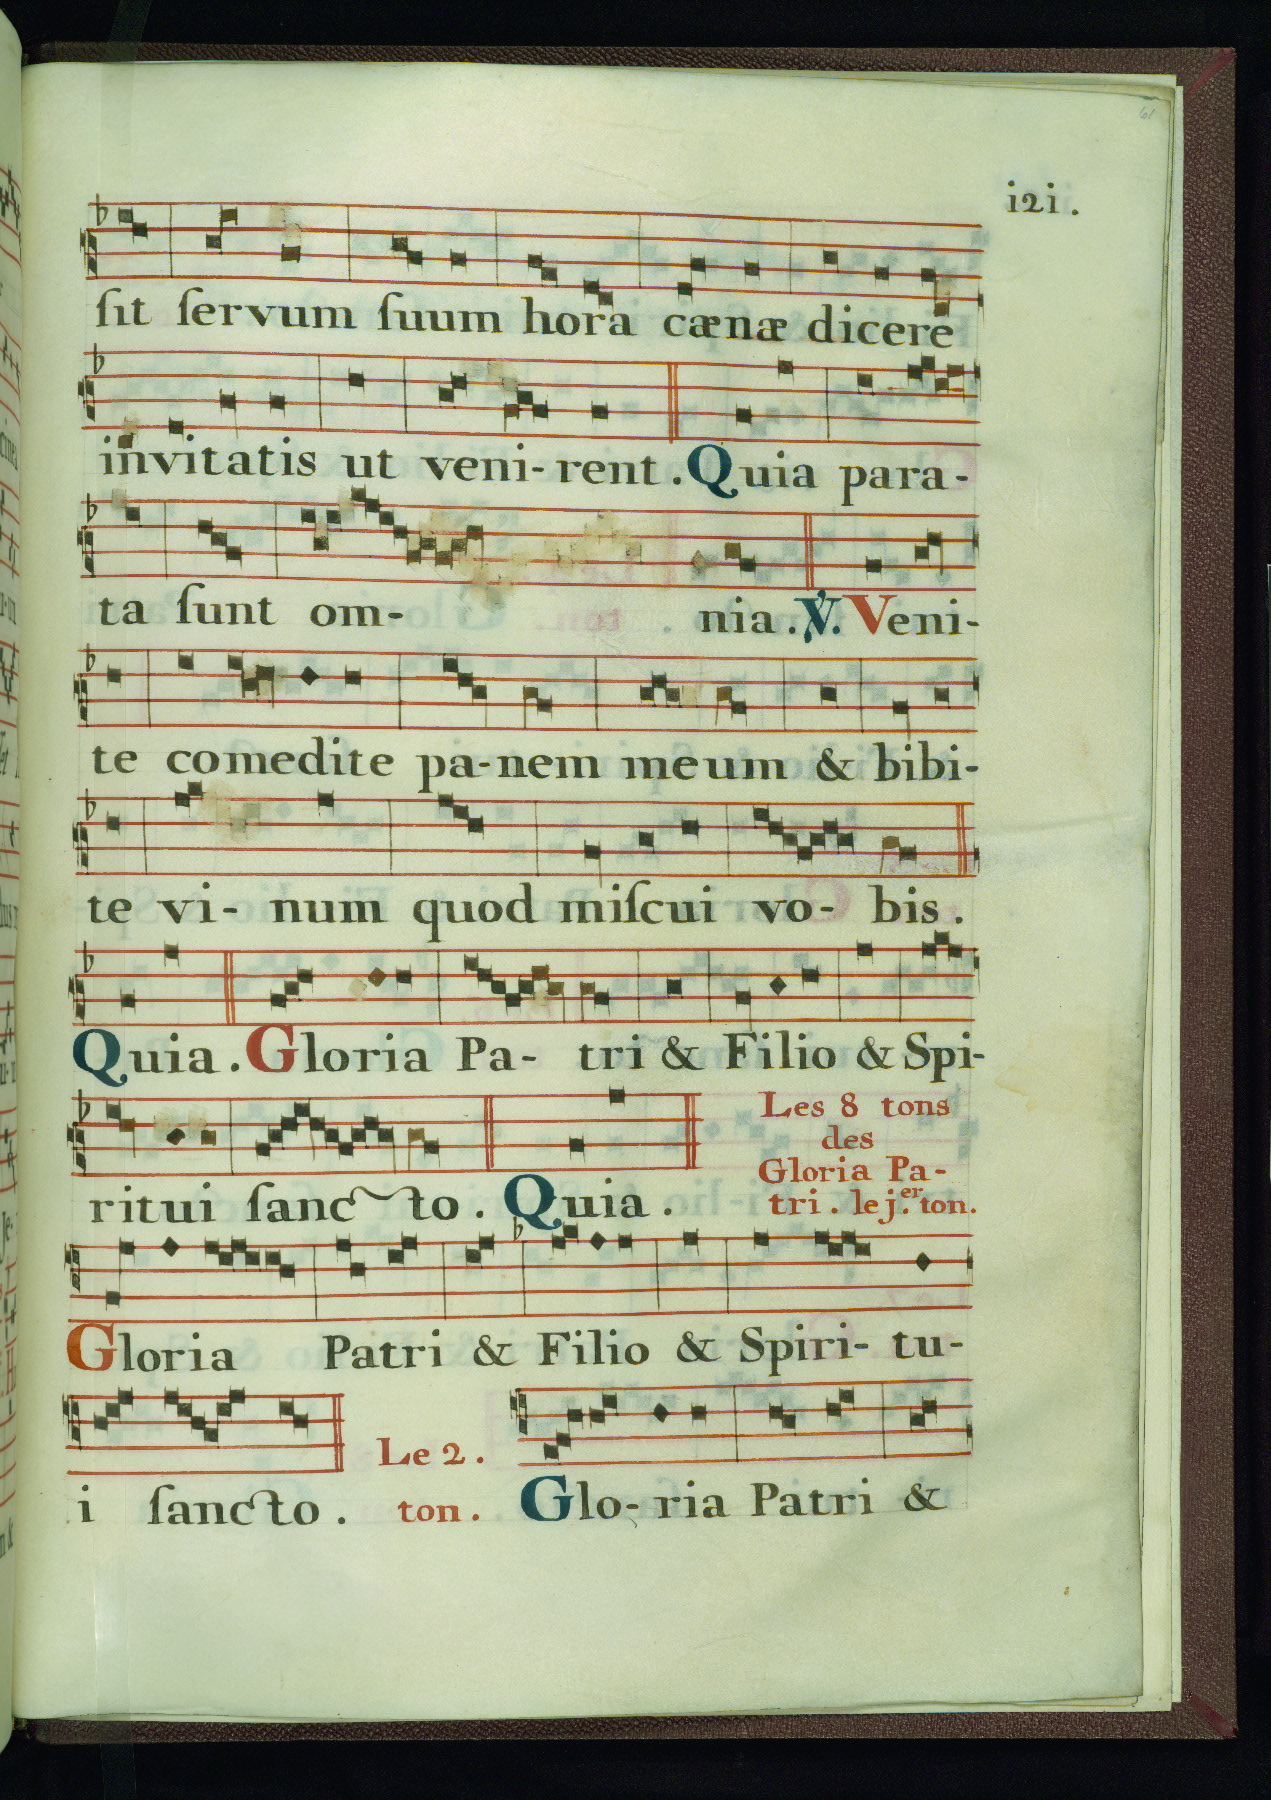 61
i2i.
ſit ſervum ſuum hora cænæ dicere
invitatis ut veni-rent. Quia para-
ta ſunt om- nia. ℣. Veni-
te comedite pa-nem meum & bibi-
te vi- num quod miſcui vo- bis.
Quia. Gloria Pa- tri & Filio & Spi-
ritui ſancto. Quia.
Les 8 tons
des
Gloria Pa-
tri. le j.er ton.
Gloria Patri & Filio & Spiri- tu-
i ſancto.
Le 2.
ton.
Glo- ria Patri &